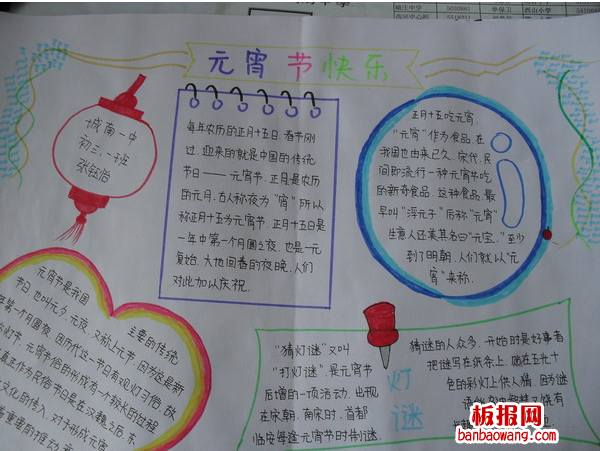 元宵节快乐
城南一中
初三、一班
张钰怡
每年农历的正月十五日,春节刚
过,迎来的就是中国的传统
节日——元宵节。正月是农历
的元月,古人称夜为“宵”所以
称正月十五为元宵节。正月十五日是
一年中第一个月圆之夜,也是一元
复始,大地回春的夜晚,人们
对此加以庆祝.
正月十五吃元宵,
“元宵”作为食品,在
我国也由来已久。宋代,民
间即流行一种元宵节吃
的新奇食品。这种食品,最
早叫“浮元子”后称“元宵”
生意人还美其名曰“元宝。”至少
到了明朝,人们就以“元
宵”来称.
元宵节是我国
主要的传统
节日,也叫元夕、元夜,又称上元节,因为这是新
年第一个月圆夜。因历代这一节日有观灯习俗,故
灯节。元宵节俗的形成有一个较长的过程
真正作为民俗节日是在汉魏之后。东
文化的传入,对于形成元宵
着重要的推动
“猜灯谜”又叫
“打灯谜”是元宵节
后增的一项活动,出现
在宋朝。南宋时,首都
临安每逢元宵节时制谜,
灯
谜
猜谜的人众多。开始时是好事者
把谜写在纸条上,贴在五光十
色的彩灯上供人猜。因为谜
语能
板报网
banbaowang.com